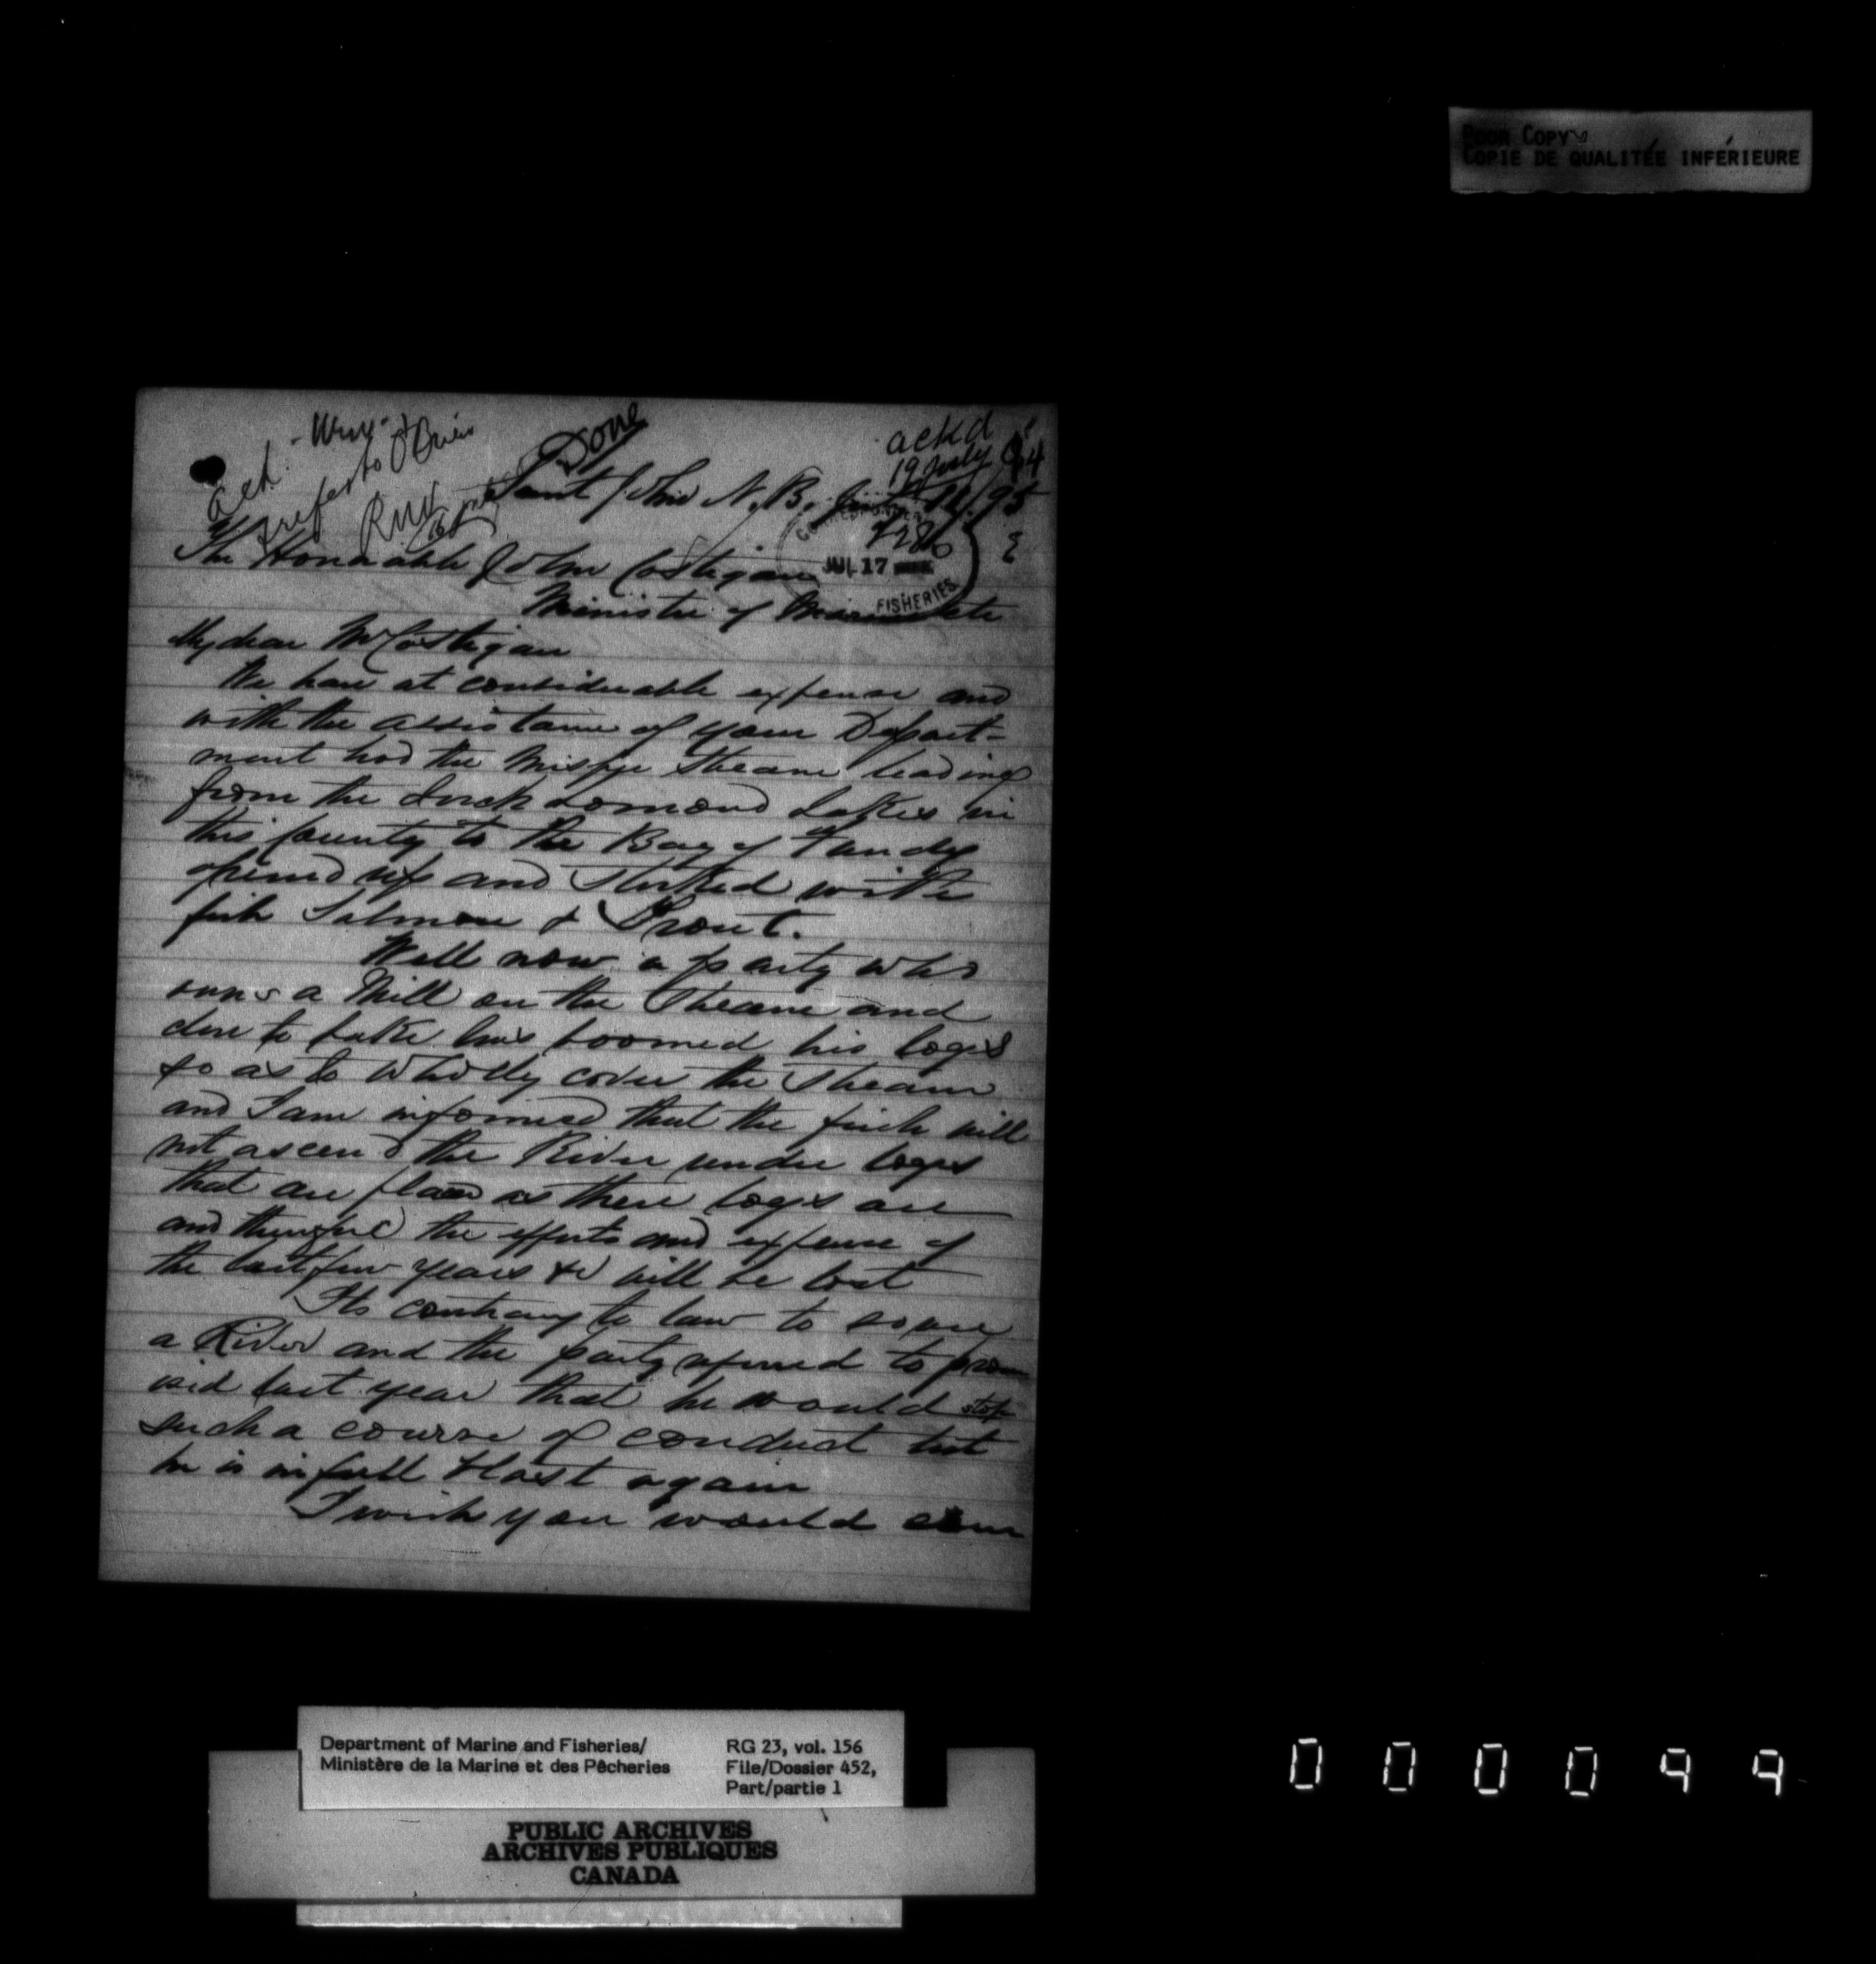 POOR COPY
COPIE DE QUALITÉE INFÉRIEURE
Done
ackd
19 July 94
Ack. Wm.
& refer to O'Brien
Saint John N.B. July 95
7286
CORRESPONDENCE
JUL 17
FISHERIES
The Honorable John Costigan
Minister of Marine etc
My dear Mr Costigan
We have at considerable expense and
with the assistance of your Depart-
ment had the Mispec Stream leading
from the Loch Lomond Lakes in
this County to the Bay of Fundy
opened up and stocked with
fish Salmon & Trout.
Well now a party who
runs a Mill on the Stream and
close to Lake has boomed his logs
so as to wholly cover the Stream
and I am informed that the fish will
not ascend the River under logs
that are placed as these logs are
and therefore the efforts and expense of
the last few years &c will be lost
Its contrary to law to
a River and the party referred to prom
ised last year that he would stop
such a course of conduct but
he is in full blast again
I wish you would
Department of Marine and Fisheries/
Ministère de la Marine et des Pêcheries
RG 23, vol. 156
File/Dossier 452,
Part/partie 1
PUBLIC ARCHIVES
ARCHIVES PUBLIQUES
CANADA
000099